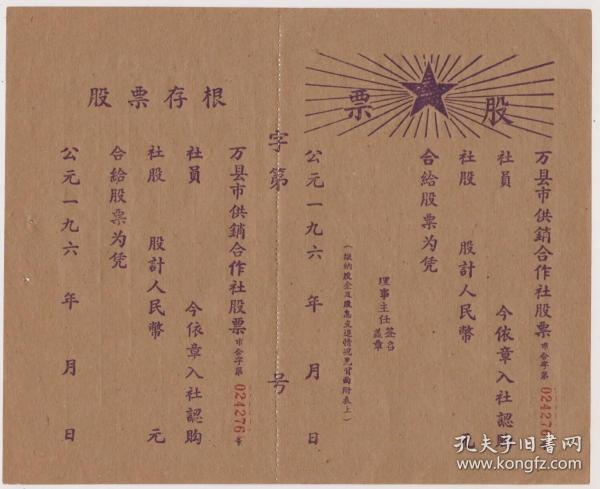 股票
万县市供銷合作社股票 市合字第 024276
社員 今依章入社認購
社股 股計人民幣 元
合給股票为凭
理事主任 签名盖章
(繳納股金及股息支退情况見背面附表上)
公元一九六 年 月 日
字第 号
股票存根
万县市供銷合作社股票 市合字第 024276 筹
社員 今依章入社認购
社股 股計人民幣 元
合給股票为凭
公元一九六 年 月 日
孔夫子旧书网
www.kongfz.com